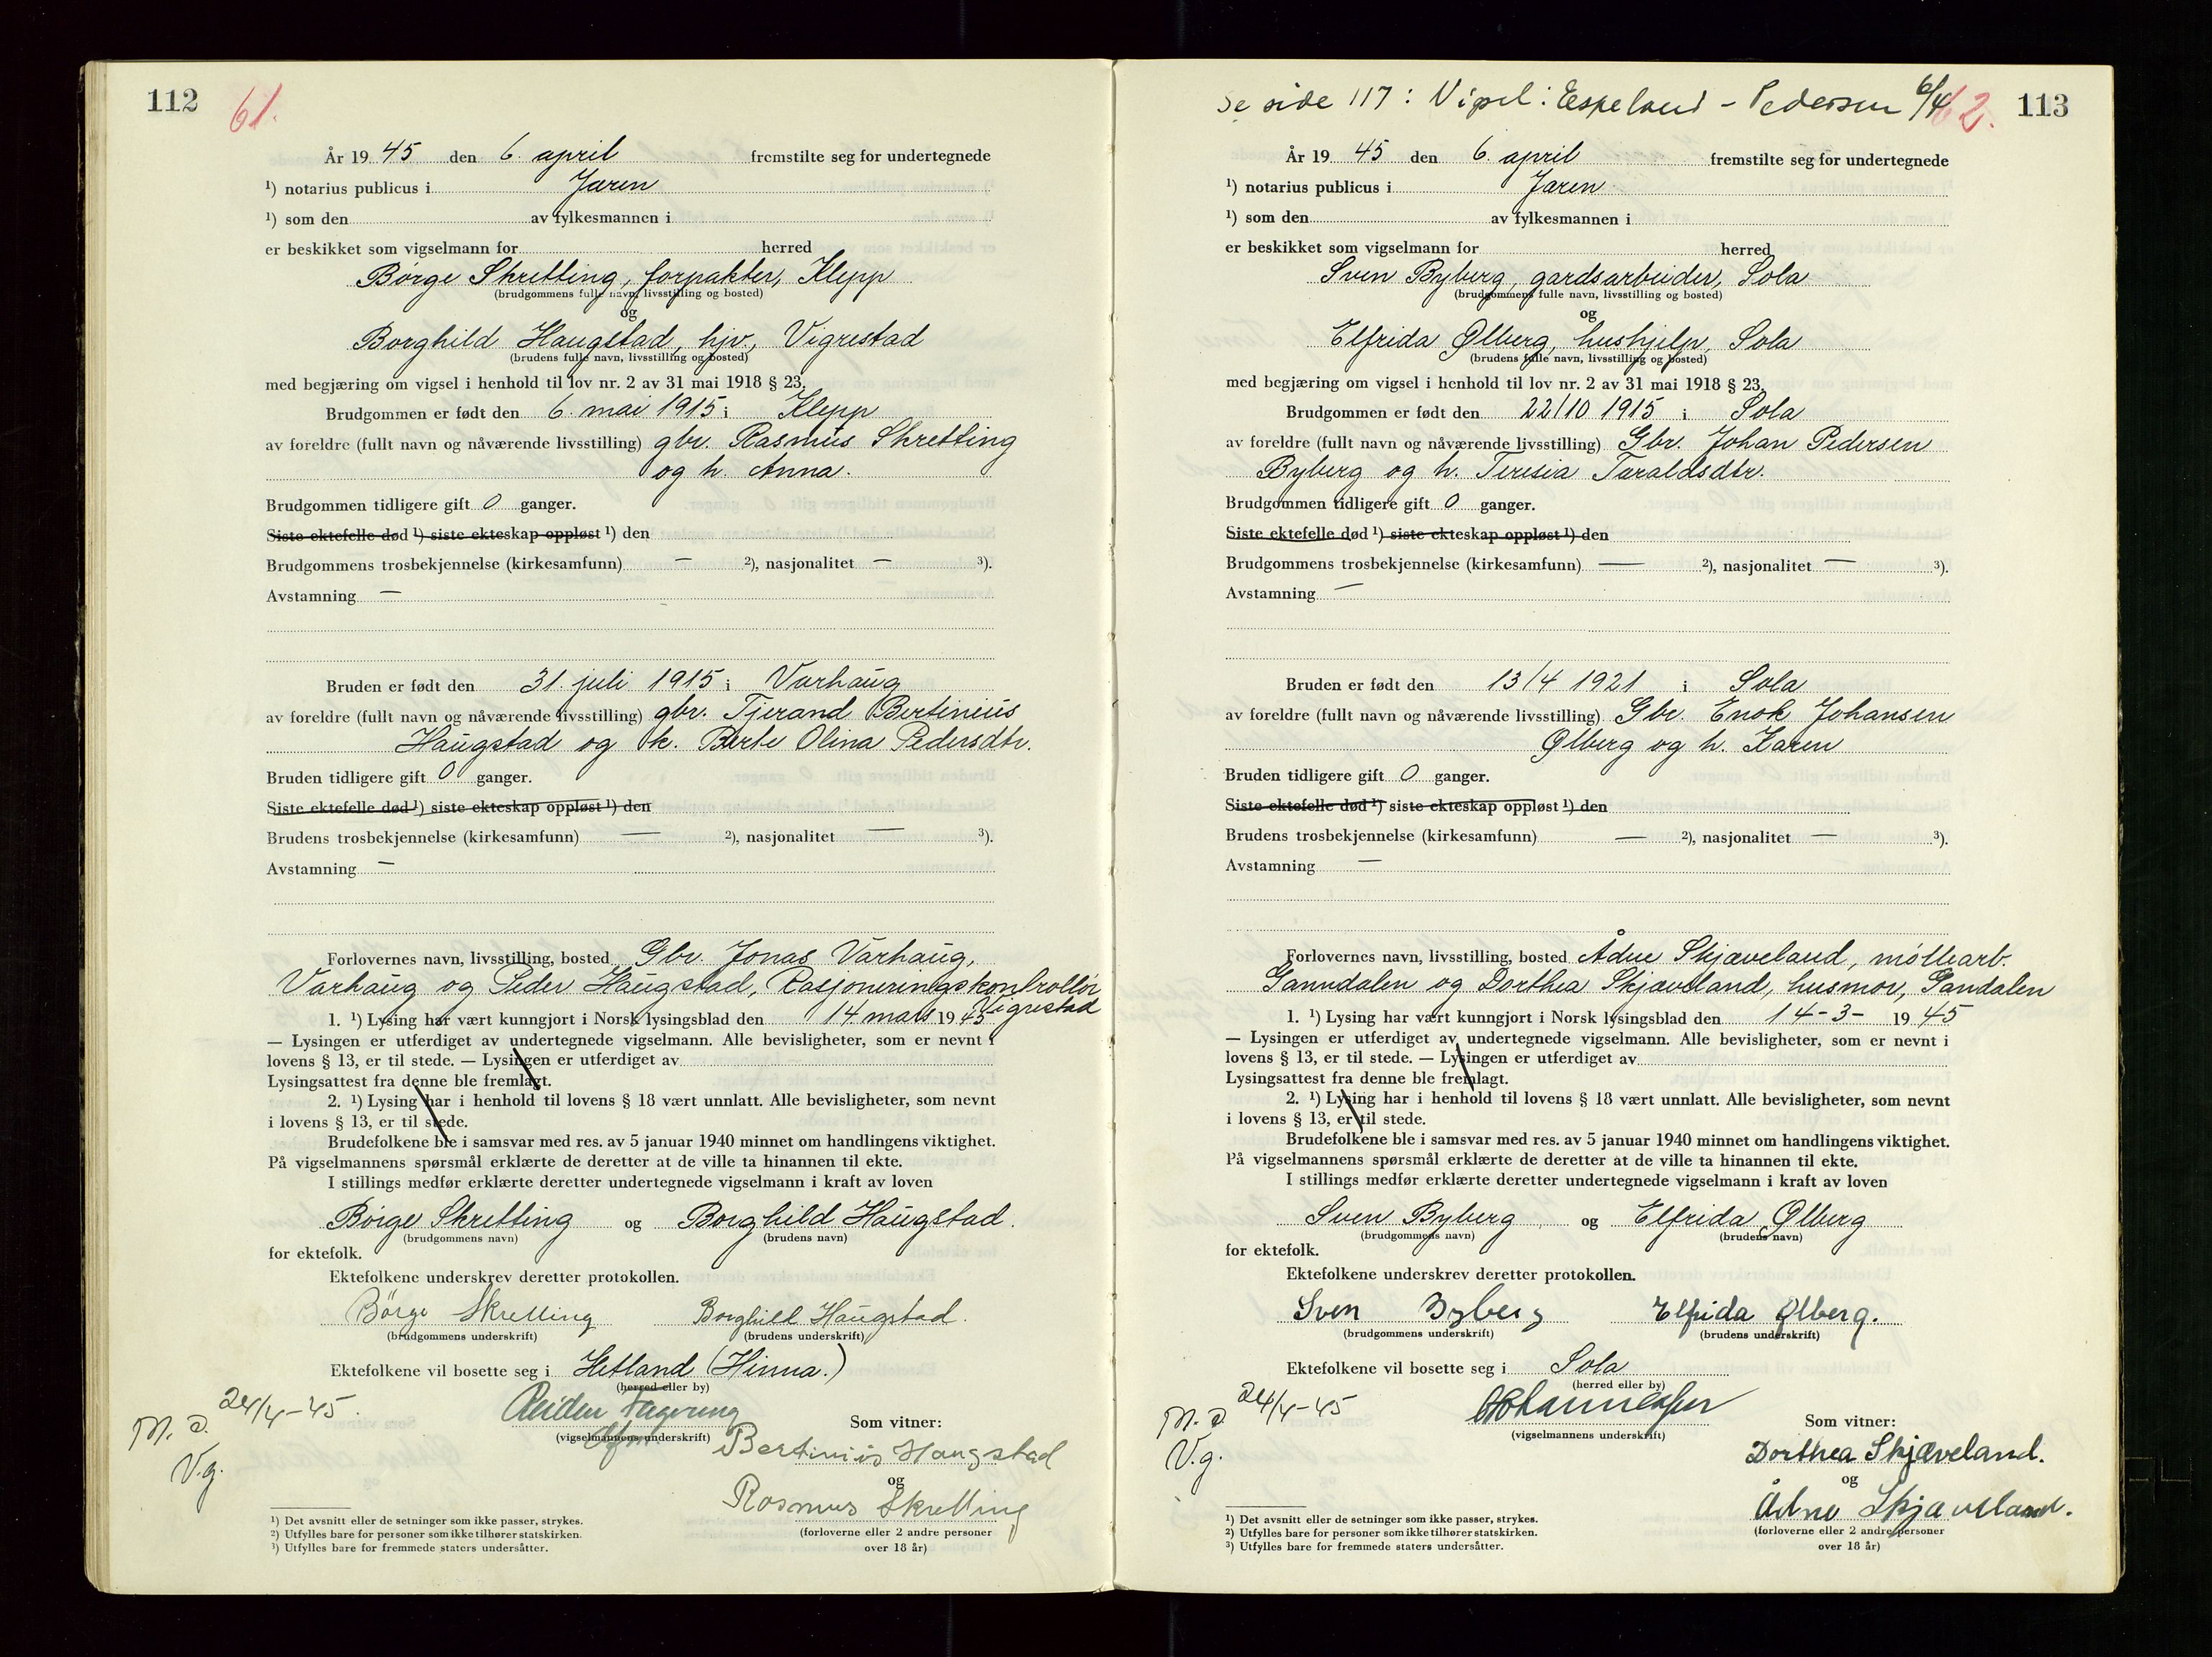 112 61.
År 19 45 den 6. april fremstilte seg for undertegnede
¹) notarius publicus i Jæren
¹) som den av fylkesmannen i
er beskikket som vigselmann for herred
Børge Skretting, forpakter, Klepp
(brudgommens fulle navn, livsstilling og bosted)
og
Borghild Haugstad, hjv., Vigrestad
(brudens fulle navn, livsstilling og bosted)
med begjæring om vigsel i henhold til lov nr. 2 av 31 mai 1918 § 23.
Brudgommen er født den 6. mai 1915 i Klepp
av foreldre (fullt navn og nåværende livsstilling) gbr. Rasmus Skretting
og h. Anna.
Brudgommen tidligere gift 0 ganger.
Siste ektefelle død ¹) siste ekteskap oppløst ¹) den
Brudgommens trosbekjennelse (kirkesamfunn) — ²), nasjonalitet — ³).
Avstamning —
Bruden er født den 31. juli 1915 i Varhaug
av foreldre (fullt navn og nåværende livsstilling) gbr. Tjerand Bertinius
Haugstad og k. Berte Olina Pedersdtr.
Bruden tidligere gift 0 ganger.
Siste ektefelle død ¹) siste ekteskap oppløst ¹) den
Brudens trosbekjennelse (kirkesamfunn) — ²), nasjonalitet — ³).
Avstamning —
Forlovernes navn, livsstilling, bosted Gbr. Jonas Varhaug,
Varhaug og Peder Haugstad, Rasjoneringskontrollør
Vigrestad
1. ¹) Lysing har vært kunngjort i Norsk lysingsblad den 14 mars 19 45
— Lysingen er utferdiget av undertegnede vigselmann. Alle bevisligheter, som er nevnt i
lovens § 13, er til stede. — Lysingen er utferdiget av
Lysingsattest fra denne ble fremlagt.
2. ¹) Lysing har i henhold til lovens § 18 vært unnlatt. Alle bevisligheter, som nevnt
i lovens § 13, er til stede.
Brudefolkene ble i samsvar med res. av 5 januar 1940 minnet om handlingens viktighet.
På vigselmannens spørsmål erklærte de deretter at de ville ta hinannen til ekte.
I stillings medfør erklærte deretter undertegnede vigselmann i kraft av loven
Børge Skretting og Borghild Haugstad.
(brudgommens navn) (brudens navn)
for ektefolk.
Ektefolkene underskrev deretter protokollen.
Börge Skretting Borghild Haugstad.
(brudgommens underskrift) (brudens underskrift)
Ektefolkene vil bosette seg i Hetland (Hinna.)
(herred eller by)
24/4-45.
M. d.
V.g.
(vigselmannens underskrift)
Som vitner:
Bertinius Haugstad
og
Rasmus Skretting
(forloverne eller 2 andre personer
over 18 år)
¹) Det avsnitt eller de setninger som ikke passer, strykes.
²) Utfylles bare for personer som ikke tilhører statskirken.
³) Utfylles bare for fremmede staters undersåtter.
Se side 117: Vigsel: Eskeland - Pedersen 6/4 62. 113
År 19 45 den 6. april fremstilte seg for undertegnede
¹) notarius publicus i Jæren
¹) som den av fylkesmannen i
er beskikket som vigselmann for herred
Sven Byberg, gardsarbeider, Sola
(brudgommens fulle navn, livsstilling og bosted)
og
Elfrida Ølberg, hushjelp, Sola
(brudens fulle navn, livsstilling og bosted)
med begjæring om vigsel i henhold til lov nr. 2 av 31 mai 1918 § 23.
Brudgommen er født den 22/10 1915 i Sola
av foreldre (fullt navn og nåværende livsstilling) Gbr. Johan Pedersen
Byberg og h. Teresia Taraldsdtr.
Brudgommen tidligere gift 0 ganger.
Siste ektefelle død ¹) siste ekteskap oppløst ¹) den
Brudgommens trosbekjennelse (kirkesamfunn) — ²), nasjonalitet — ³).
Avstamning —
Bruden er født den 13/4 1921 i Sola
av foreldre (fullt navn og nåværende livsstilling) Gbr. Enok Johansen
Ølberg og h. Karen
Bruden tidligere gift 0 ganger.
Siste ektefelle død ¹) siste ekteskap oppløst ¹) den
Brudens trosbekjennelse (kirkesamfunn) — ²), nasjonalitet — ³).
Avstamning —
Forlovernes navn, livsstilling, bosted Ådne Skjæveland, møllearb.
Ganndalen og Dorthea Skjæveland, husmor, Gandalen
1. ¹) Lysing har vært kunngjort i Norsk lysingsblad den 14-3- 19 45
— Lysingen er utferdiget av undertegnede vigselmann. Alle bevisligheter, som er nevnt i
lovens § 13, er til stede. — Lysingen er utferdiget av
Lysingsattest fra denne ble fremlagt.
2. ¹) Lysing har i henhold til lovens § 18 vært unnlatt. Alle bevisligheter, som nevnt
i lovens § 13, er til stede.
Brudefolkene ble i samsvar med res. av 5 januar 1940 minnet om handlingens viktighet.
På vigselmannens spørsmål erklærte de deretter at de ville ta hinannen til ekte.
I stillings medfør erklærte deretter undertegnede vigselmann i kraft av loven
Sven Byberg og Elfrida Ølberg
(brudgommens navn) (brudens navn)
for ektefolk.
Ektefolkene underskrev deretter protokollen.
Sven Byberg Elfrida Ølberg.
(brudgommens underskrift) (brudens underskrift)
Ektefolkene vil bosette seg i Sola
(herred eller by)
24/4-45
M. d
V.g.
(vigselmannens underskrift)
Som vitner:
Dorthea Skjæveland.
og
Ådne Skjæveland.
(forloverne eller 2 andre personer
over 18 år)
¹) Det avsnitt eller de setninger som ikke passer, strykes.
²) Utfylles bare for personer som ikke tilhører statskirken.
³) Utfylles bare for fremmede staters undersåtter.